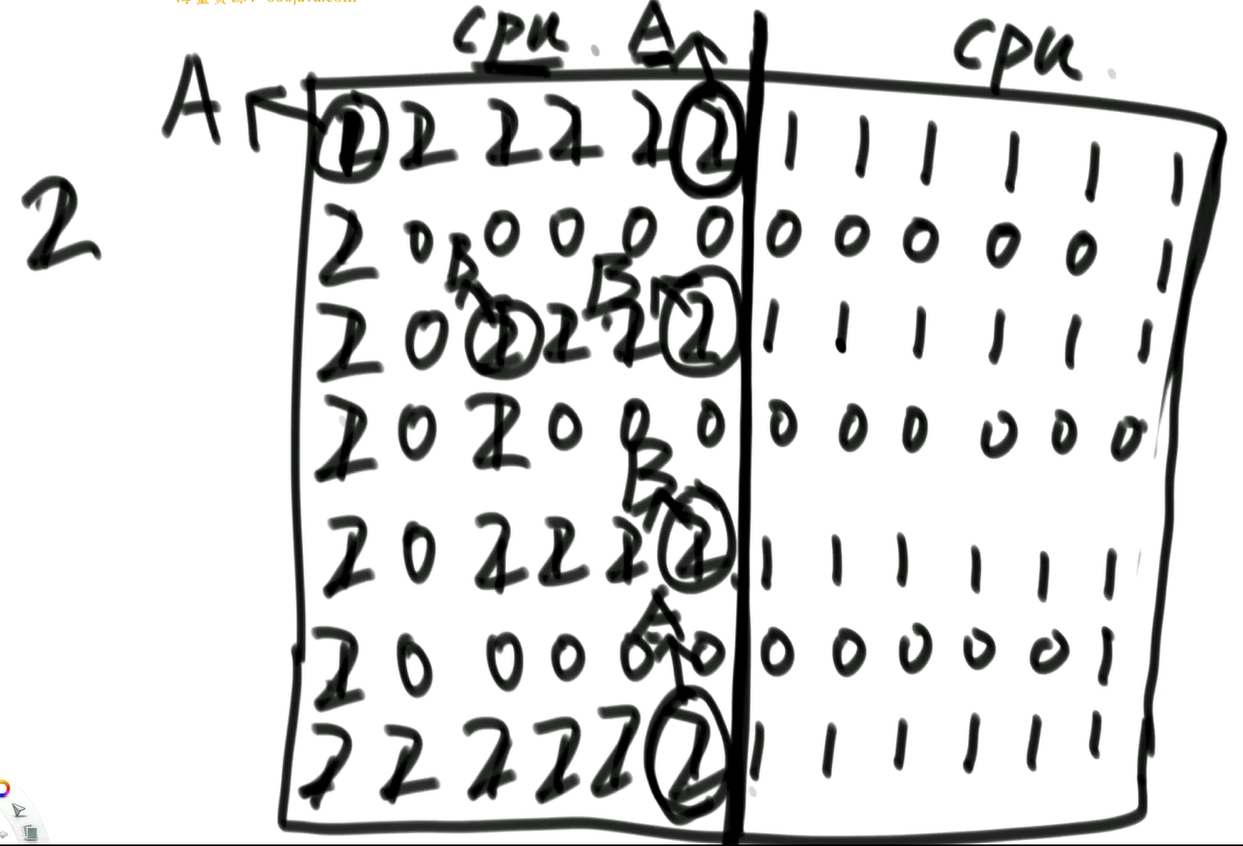 cpu. A cpu.
A 2 2 2 2 2 2 1 1 1 1 1 1
2
2 0 0 0 0 0 0 0 0 0 0 1
B B
2 0 2 2 2 2 1 1 1 1 1 1
2 0 2 0 0 0 0 0 0 0 0 0
B
2 0 2 2 2 2 1 1 1 1 1 1
A
2 0 0 0 0 0 0 0 0 0 0 1
2 2 2 2 2 2 1 1 1 1 1 1